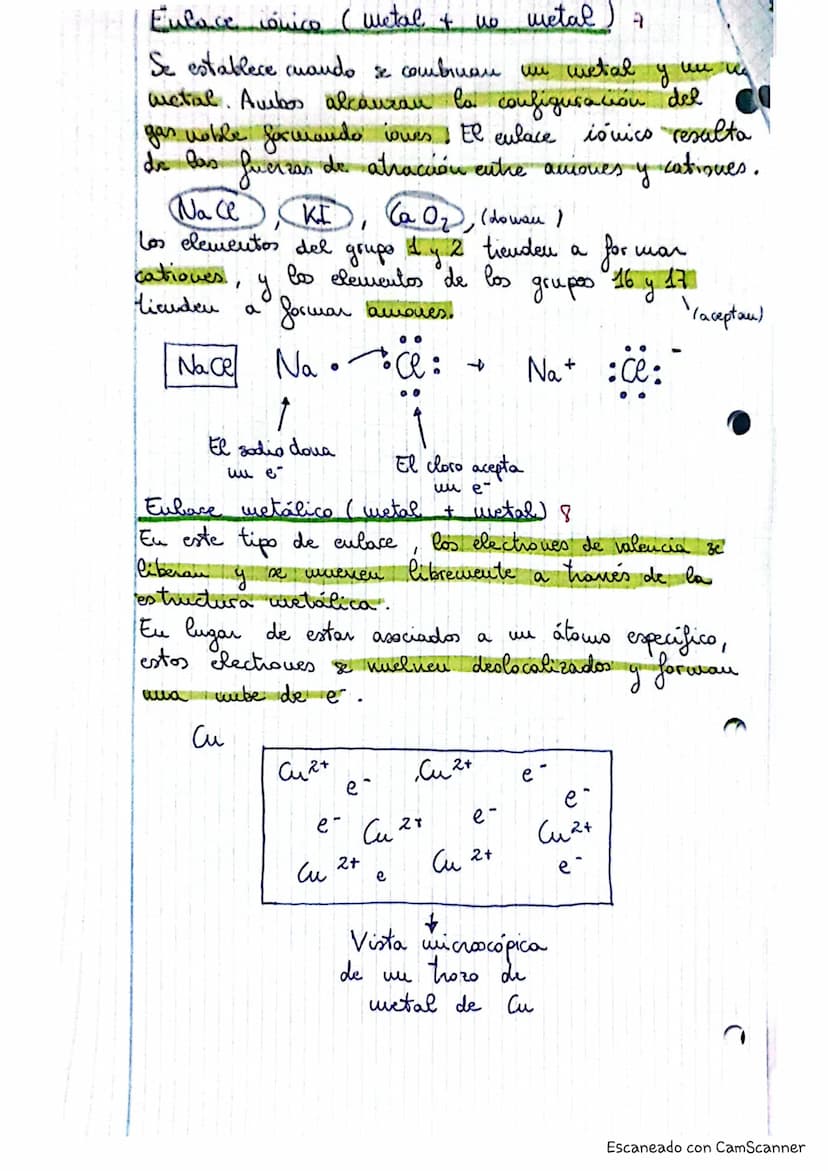 Enlace iónico (metal + no metal) 7
Se establece cuando se combinan un metal y un no
metal. Ambos alcanzan la configuración del
gas noble formando iones. El enlace iónico resulta
de las fuerzas de atracción entre aniones y cationes.
NaCl, KI, CaO2, (donan)
Los elementos del grupo 1 y 2 tienden a formar
cationes, y los elementos de los grupos 16 y 17
tienden a formar aniones. (aceptan)
NaCl Na • :Cl: → Na+ :Cl:-
El sodio dona
un e-
El cloro acepta
un e-
Enlace metálico (metal + metal) 8
En este tipo de enlace, los electrones de valencia se
liberan y se mueven libremente a través de la
estructura metálica.
En lugar de estar asociados a un átomo específico,
estos electrones se vuelven deslocalizados y forman
una nube de e-.
Cu
Cu2+ e- Cu2+ e-
e-
e- Cu2+ e- Cu2+
Cu2+ e Cu2+ e-
Vista microscópica
de un trozo de
metal de Cu
Escaneado con CamScanner